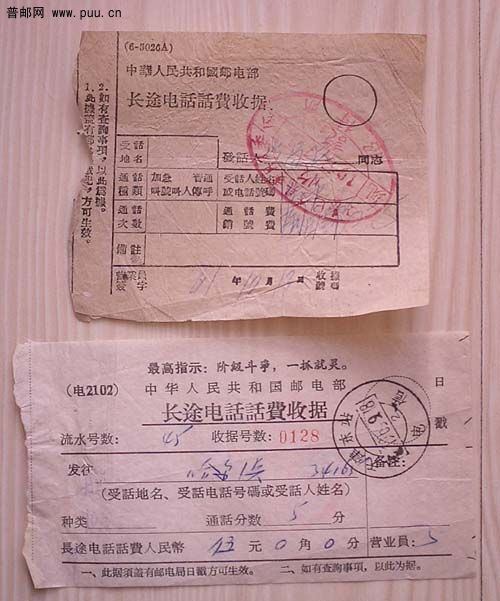 普邮网
www.puu.cn
(6-5026A)
中華人民共和國邮电部
长途电話話費收据
2.如有查詢事項，以此為據。
1.此據蓋有郵
方可生效。
受話地名
發話
同志
通話種類
加急 普通
叫號叫人傳呼
受話人姓名或电話號碼
通話次數
通話費
銷號費
備註
營業員簽字
年 月 日
收據號碼
最高指示：阶級斗爭，一抓就灵。
(电2102)
中华人民共和国邮电部
长途电話話費收据
日
戳
流水号数：45 收据号数：0128
发往 哈尔滨 34161 备注：
(受話地名、受話电話号碼或受話人姓名)
种类 通話分数 5 分
長途电話話費人民幣 伍元0角0分 营业员：
一、此据須盖有邮电局日戳方可生效。 二、如有查詢事項，以此为据。